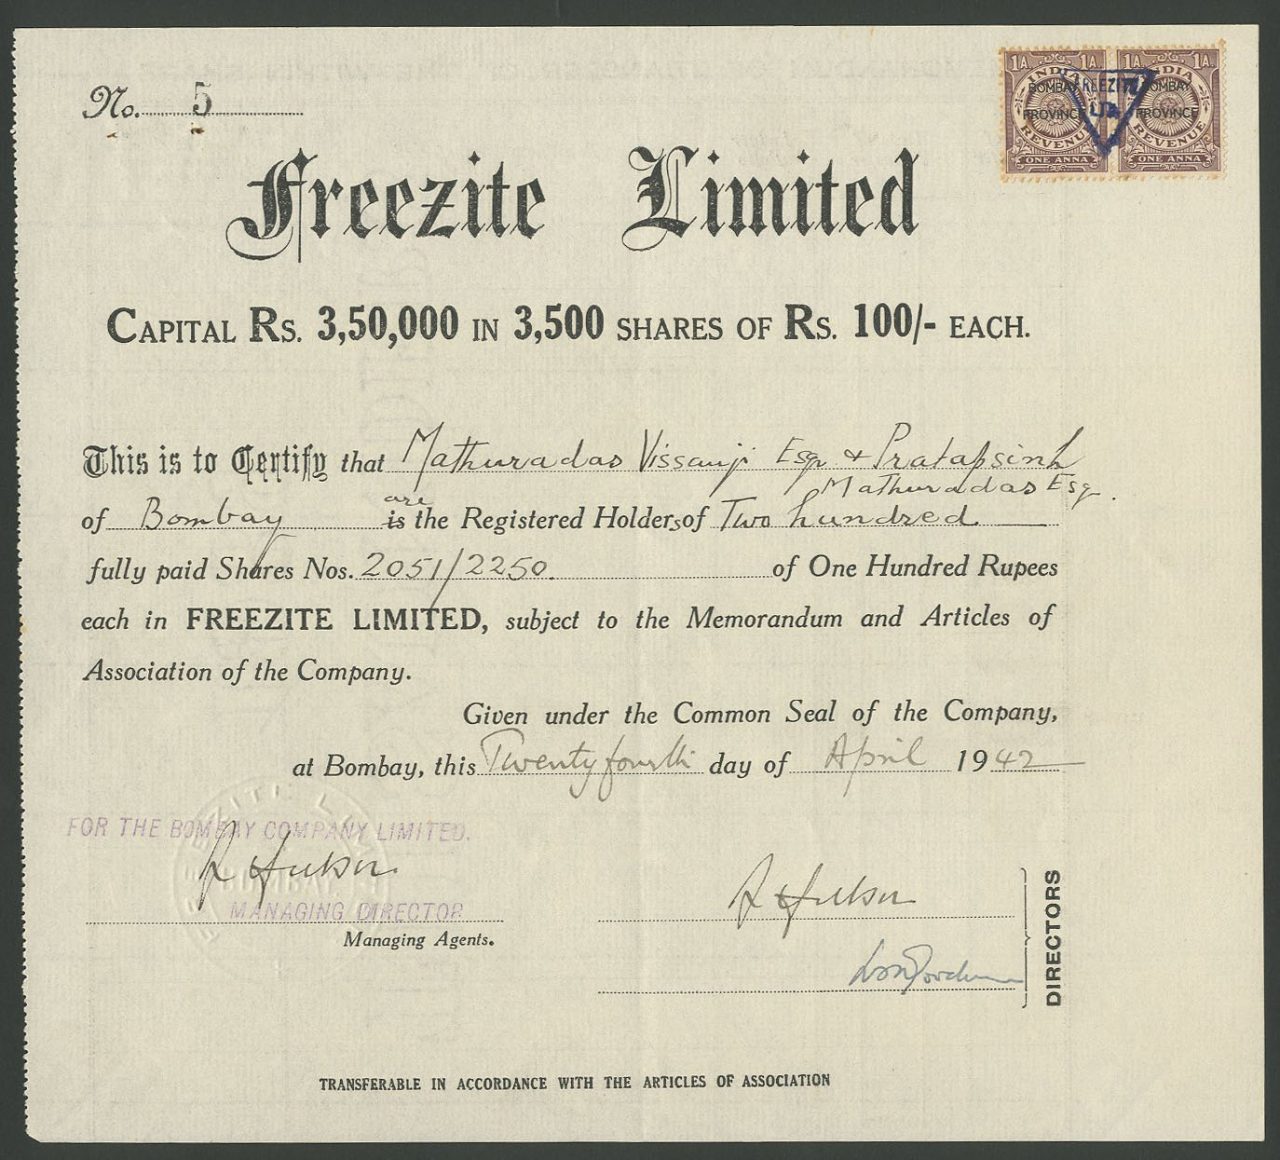 No. 5
1A. 1A. 1A. 1A.
INDIA INDIA
BOMBAY FREEZITE BOMBAY
PROVINCE LTD. PROVINCE
REVENUE REVENUE
ONE ANNA ONE ANNA
Freezite Limited
CAPITAL RS. 3,50,000 IN 3,500 SHARES OF RS. 100/- EACH.
This is to Certify that Mathuradas Vissanji Esqr & Pratapsinh
Mathuradas Esq.
of Bombay are is the Registered Holders of Two hundred
fully paid Shares Nos. 2051/2250 of One Hundred Rupees
each in FREEZITE LIMITED, subject to the Memorandum and Articles of
Association of the Company.
Given under the Common Seal of the Company,
at Bombay, this Twenty fourth day of April 1942
FOR THE BOMBAY COMPANY LIMITED.
FREEZITE LIMITED
BOMBAY
MANAGING DIRECTOR
Managing Agents.
DIRECTORS
TRANSFERABLE IN ACCORDANCE WITH THE ARTICLES OF ASSOCIATION